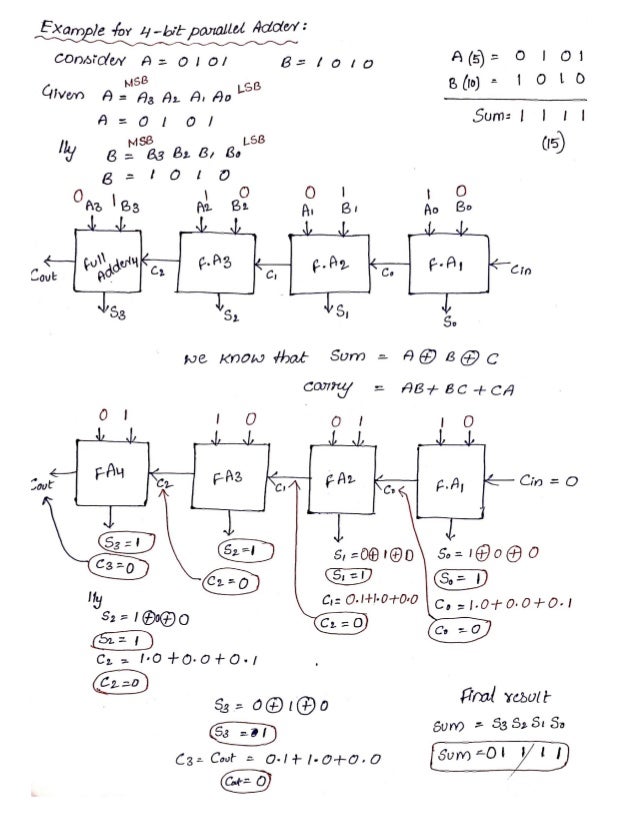 Example for 4-bit parallel Adder:
Consider A = 0101 B = 1010
A (5) = 0 1 0 1
B (10) = 1 0 1 0
Sum = 1 1 1 1
(15)
MSB LSB
Given A = A3 A2 A1 A0
A = 0 1 0 1
MSB LSB
lly B = B3 B2 B1 B0
B = 1 0 1 0
0 1 1 0 0 1 1 0
A3 B3 A2 B2 A1 B1 A0 B0
Cout Full Adder4 C2 F.A3 C1 F.A2 C0 F.A1 Cin
S3 S2 S1 S0
We know that Sum = A ⊕ B ⊕ C
Carry = AB + BC + CA
0 1 1 0 0 1 1 0
Cout FA4 C2 FA3 C1 FA2 C0 F.A1 Cin = 0
S3 = 1
C3 = 0
S2 = 1
C2 = 0
S1 = 0⊕1⊕0
S1 = 1
C1 = 0.1+1.0+0.0
C2 = 0
S0 = 1⊕0⊕0
S0 = 1
C0 = 1.0+0.0+0.1
C0 = 0
lly
S2 = 1⊕0⊕0
S2 = 1
C2 = 1.0+0.0+0.1
C2 = 0
S3 = 0⊕1⊕0
S3 = 1
C3 = Cout = 0.1+1.0+0.0
Cout = 0
Final result
Sum = S3 S2 S1 S0
Sum = 01 1 1 1